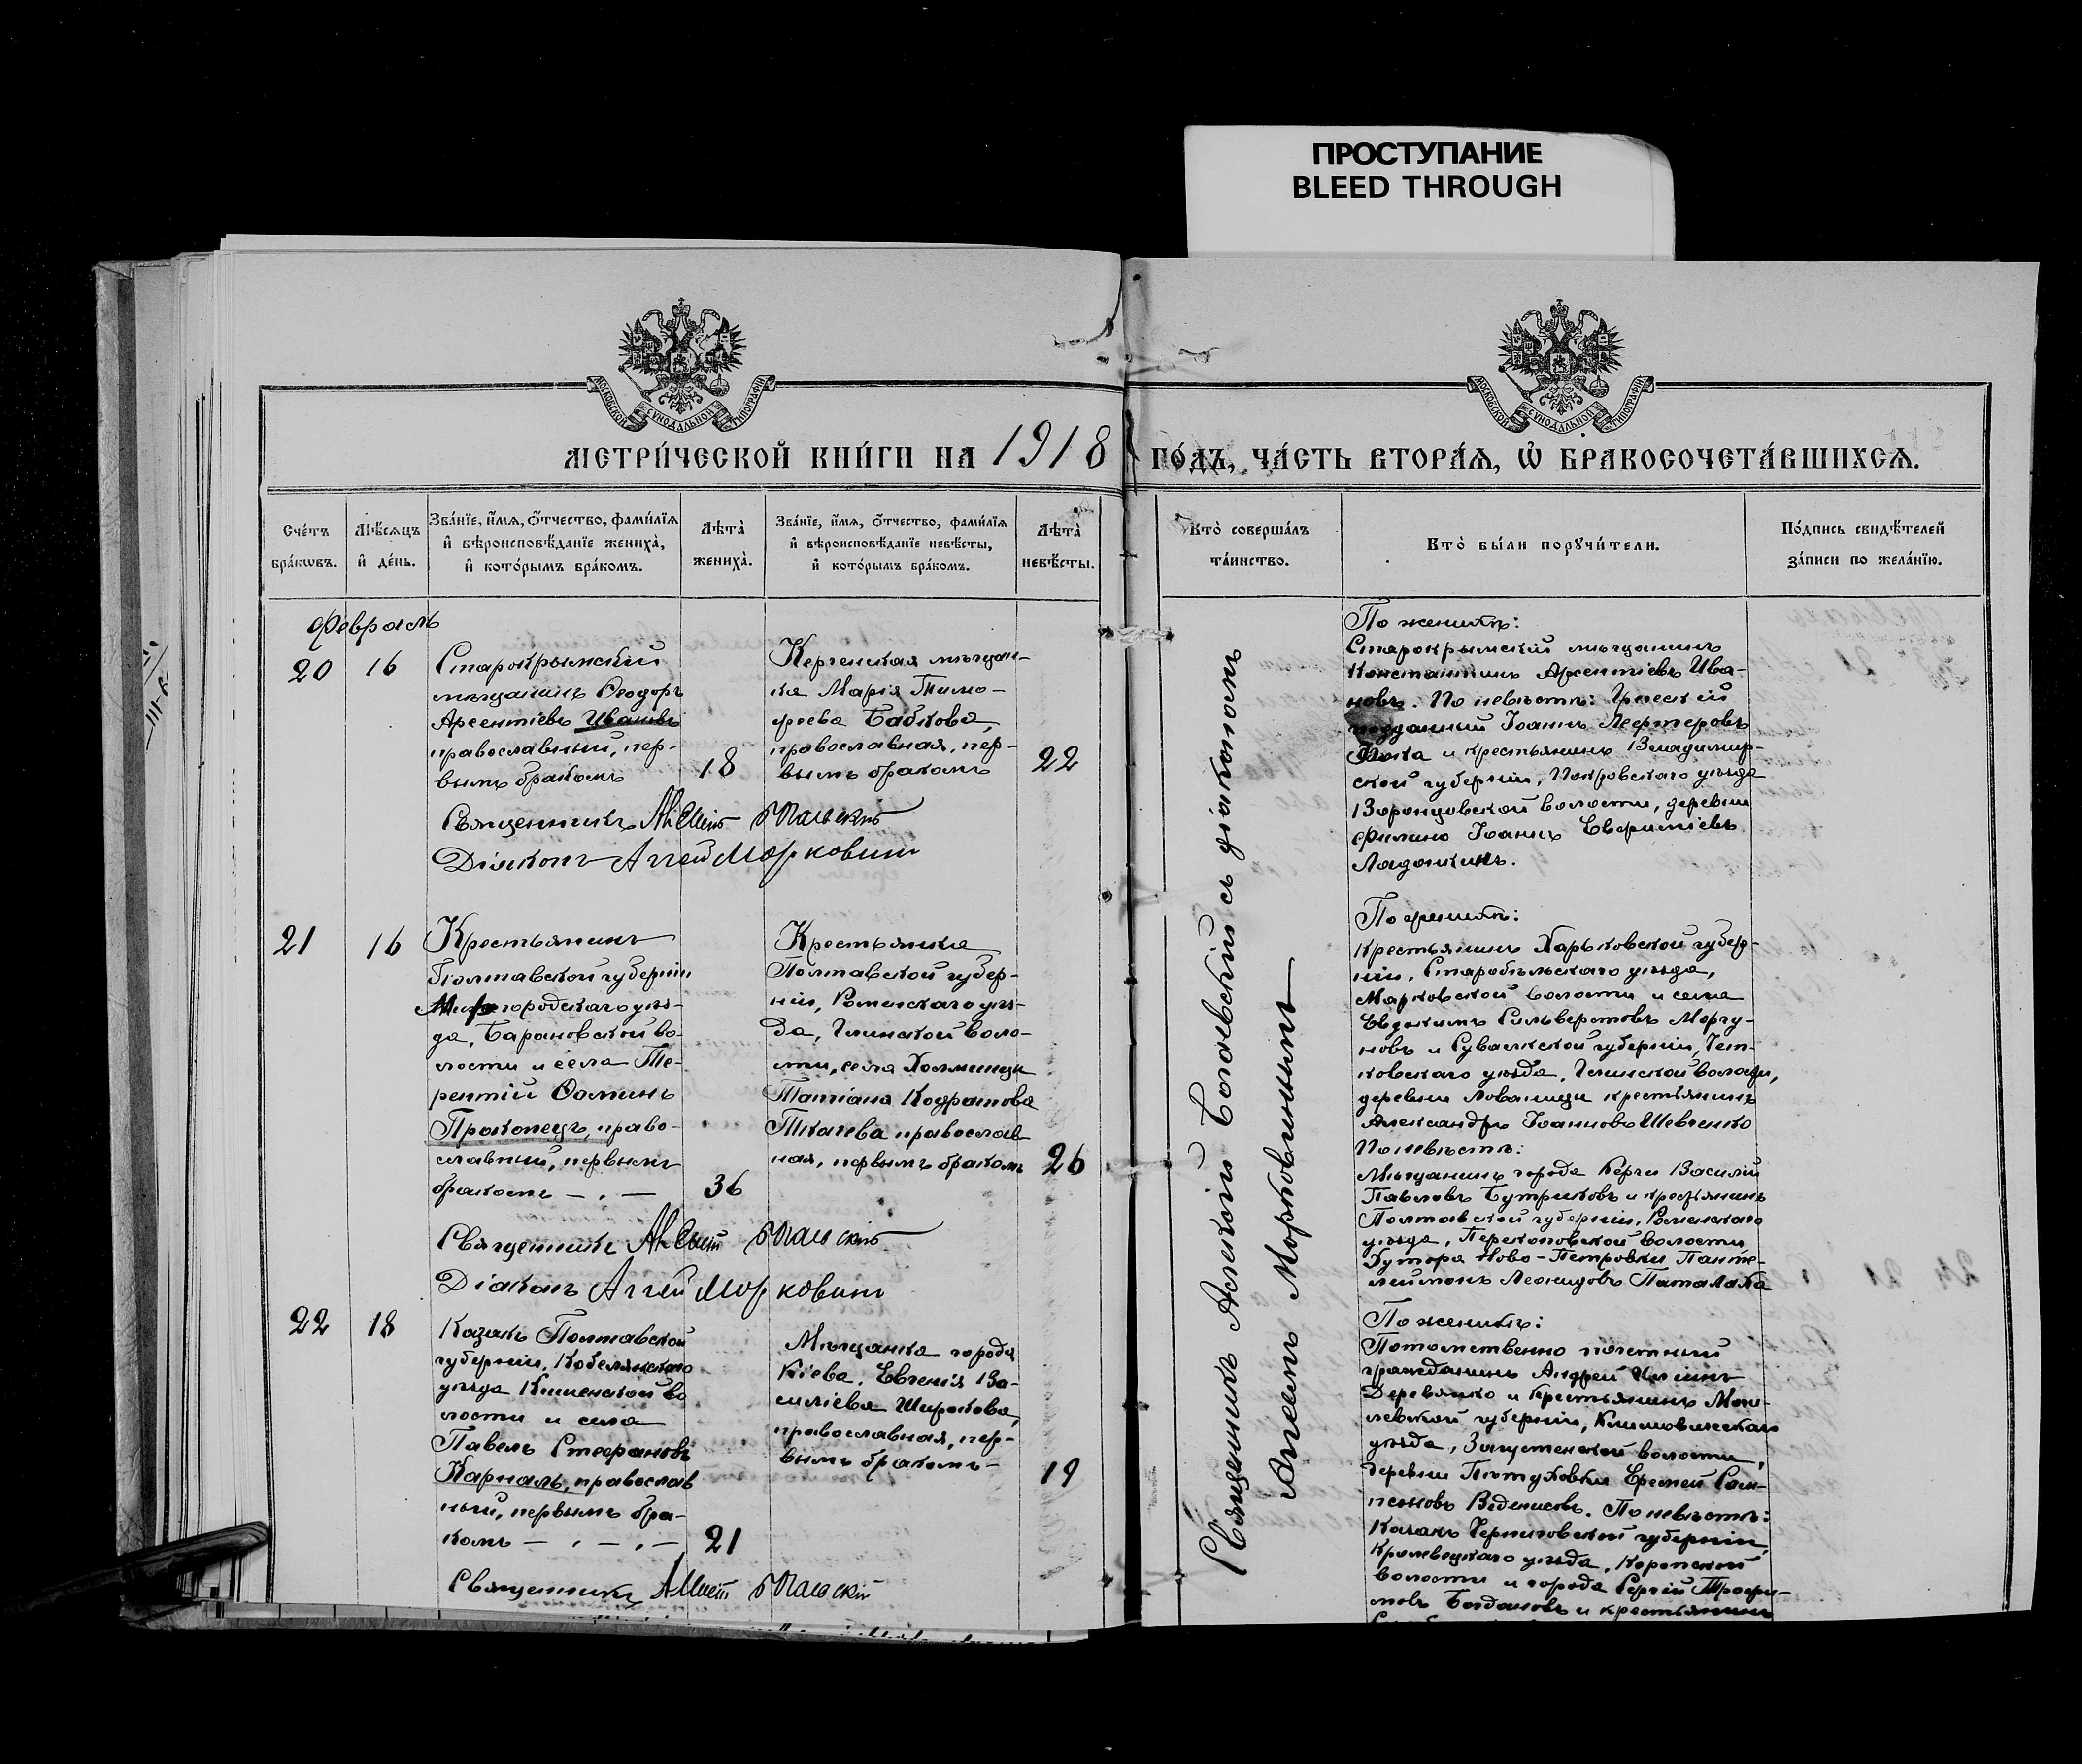 ПРОСТУПАНИЕ
BLEED THROUGH
МОСКОВСКОЙ СѴНОДАЛЬНОЙ ТИПОГРАФІИ
МОСКОВСКОЙ СѴНОДАЛЬНОЙ ТИПОГРАФІИ
МЕТРИ́ЧЕСКОЙ КНИ́ГИ НА 1918 ГО́ДЪ, ЧА́СТЬ ВТОРА́Ѧ, Ѽ БРАКОСОЧЕТА́ВШИХСѦ.
Сче́тъ бра́кѡвъ.
Мѣ́сѧцъ и҆ де́нь.
Зва́нїе, и҆́мѧ, ѻ҆́тчество, фами́лїѧ и҆ вѣроисповѣ́данїе жениха̀, и҆ кото́рымъ бра́комъ.
Лѣта̀ жениха̀.
Зва́нїе, и҆́мѧ, ѻ҆́тчество, фами́лїѧ и҆ вѣроисповѣ́данїе невѣ́сты, и҆ кото́рымъ бра́комъ.
Лѣта̀ невѣ́сты.
Кто̀ соверша́лъ та́инство.
Кто̀ бы́ли порꙋчи́тели.
По́дпись свидѣ́телей за́писи по жела́нїю.
Февраль
20
16
Старокрымскій
мѣщанинъ Ѳеодоръ
Арсентіевъ Ивановъ
православный, пер-
вымъ бракомъ
18
Керченская мѣщан-
ка Марія Тимо-
феева Бабкова,
православная, пер-
вымъ бракомъ
22
Священникъ
Діаконъ Аггей Морковинъ
По женихѣ:
Старокрымскій мѣщанинъ
Константинъ Арсентіевъ Ива-
новъ. По невѣстѣ: Греческій
подданный Іоаннъ
и крестьянинъ Владимир-
ской губерніи, Покровскаго уѣзда
Воронцовской волости, деревни
Филино Іоаннъ Евфиміевъ
Ладонкинъ.
21
16
Крестьянинъ
Полтавской губерніи
Миргородскаго уѣз-
да, Барановской во-
лости и села Те-
рентій Ѳоминъ
Прокопецъ, право-
славный, первымъ
бракомъ — . —
36
Крестьянка
Полтавской губер-
ніи, Роменскаго уѣз-
да, Глинской воло-
сти, села
Татіана Кодратова
Ткачева православ
ная, первымъ бракомъ
26
Священникъ
Діаконъ Аггей Морковинъ
По женихѣ:
Крестьянинъ Харьковской губер-
ніи, Старобѣльскаго уѣзда,
Марковской волости и села
Евдокимъ Сильверстовъ Моргу-
новъ и Сувалкской губерніи,
уѣзда, волости,
деревни крестьянинъ
Александръ Іоанновъ Шевченко
По невѣстѣ:
Мѣщанинъ города Керчи Василій
Павловъ Бутриковъ и крестьянинъ
Полтавской губерніи, Роменскаго
уѣзда, Перекоповской волости
Хутора Ново-Петровки Панте-
леимонъ Леонидовъ Паталаха
22
18
Казакъ Полтавской
губерніи, Кобелякскаго
уѣзда Кишенской во
лости и села
Павелъ Стефановъ
Карналь, православ
ный, первымъ бра-
комъ — . — . —
21
Мѣщанка города
Кіева, Евгенія Ва-
силіева Широкова,
православная, пер-
вымъ бракомъ —
19
Священникъ
По женихѣ:
Потомственно почетный
гражданинъ Андрей Ильинъ
Деревянко и крестьянинъ Моги-
левской губерніи, Климовичскаго
уѣзда, волости,
деревни Пѣтуховки Еремей Сам-
псоновъ Веденисовъ. По невѣстѣ:
Казакъ Черниговской губерніи,
Кролевецкаго уѣзда, Коропской
волости и города Сергій Трофи-
мовъ Богдановъ и крестьянинъ
Священникъ Алексій съ діакономъ
Аггеемъ Морковинымъ